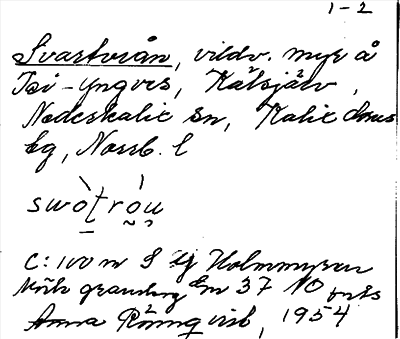 1-2
Svartviån, vildv. myr å
Tai-yngves, Kälsjärv,
Nederkalix sn, Kalix doms
bg, Norrb. l
swòt̠ròu
C: 100 m S Holmmyran
37 NO
Anna Rönnqvist, 1954